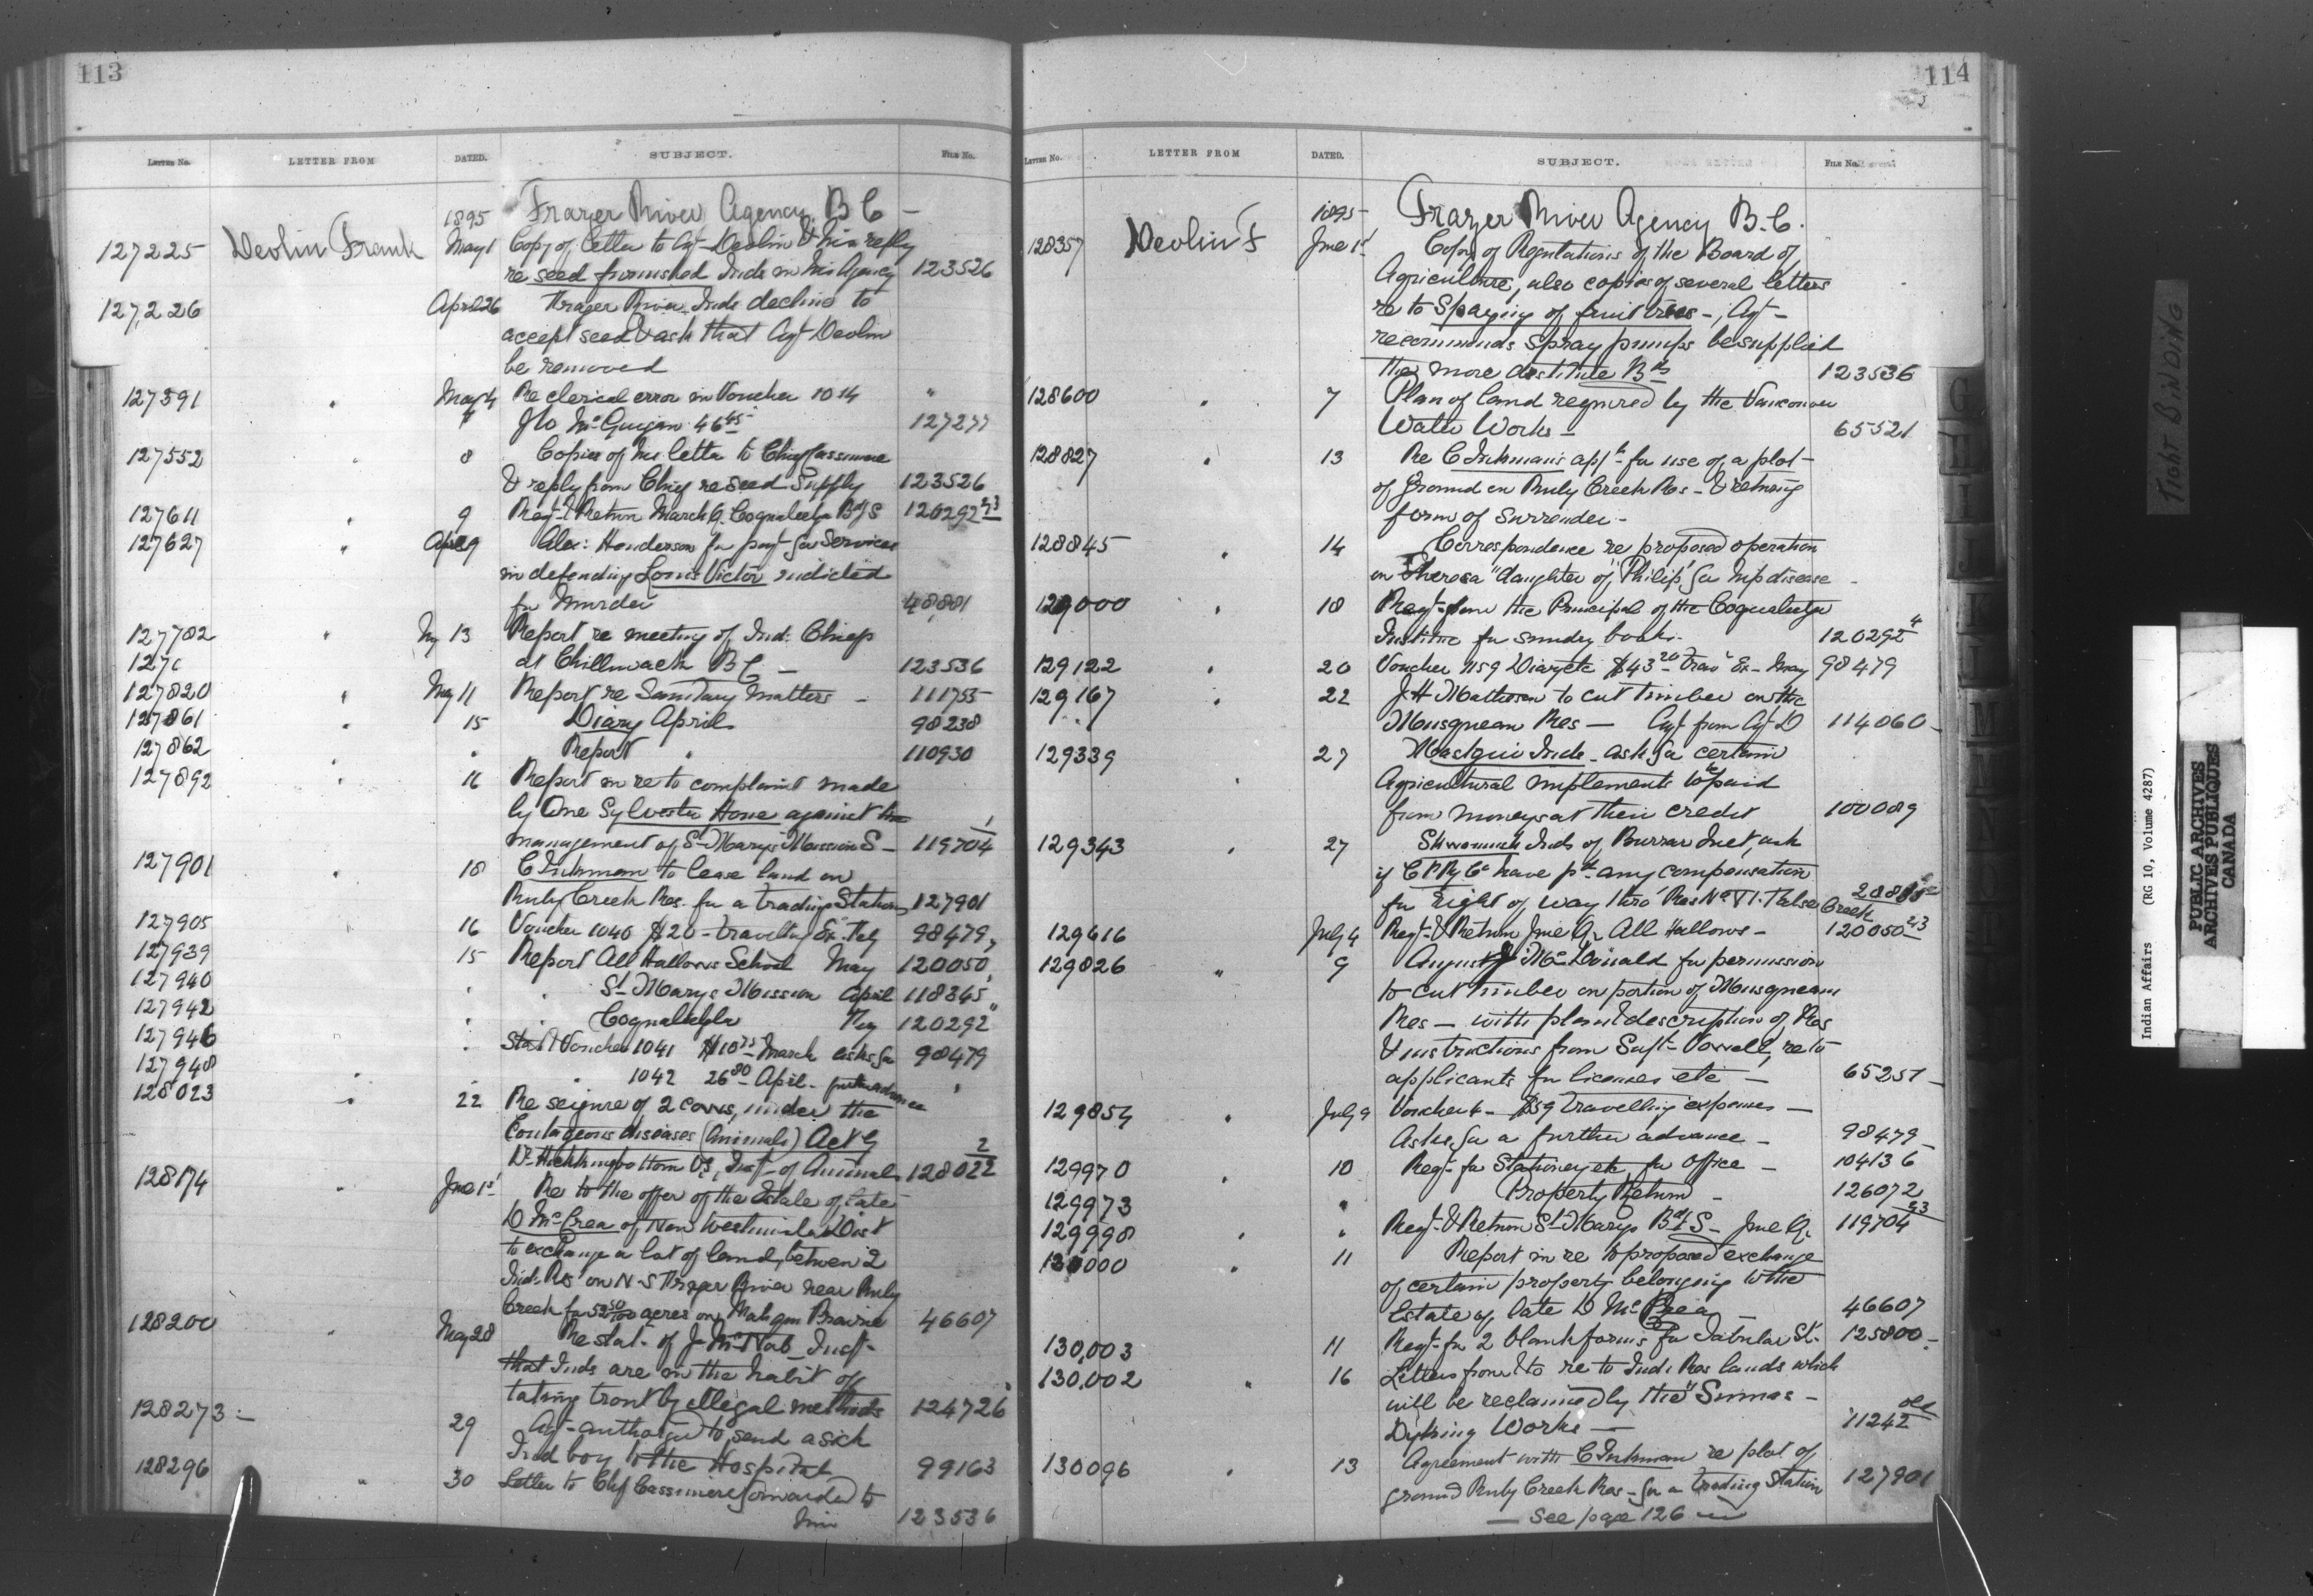 113
LETTER No. LETTER FROM DATED. SUBJECT. FILE No.
1895 Frazer River Agency B C -
127225 Devlin Frank May 1 Copy of letter to Agt Devlin & his reply
re seed furnished Inds in his Agency 123526
127,226 April 26 Frazer River Inds decline to
accept seed & ask that Agt Devlin
be removed
127391 " May 4 Re clerical error in Voucher 1014 "
Jno McGuigan 46 45 127277
127552 " 8 Copies of his letter to Chief Cassimere
& reply from Chief re Seed Supply 123526
127611 " 9 Reqt & Return March Q. Coqualeetza Bdg S 120292 23
127627 " April 9 Alex: Henderson for payt for Services
in defending Louis Victor indicted
for Murder 48,881
127782 " My 13 Report re meeting of Ind: Chiefs
127c at Chillwack B C - 123536
127820 " May 11 Report re Sanitary Matters - 111755
127861 " 15 Diary April 98238
127862 " Report " 110930
127892 " 16 Report in re to complaint made
by One Sylvester Howe against the
management of St Mary's Mission S- 119704 1
127901 " 18 C Inkman to lease land on
Ruby Creek Res. for a trading Station 127901
127905 16 Voucher 1040 $20- travelling Ex. Feby 98479
127939 15 Report All Hallows School May 120050
127940 " " St Marys Mission April 118345
127942 " " Coqualeetza " 120292
127946 " Stat & Voucher 1041 $10 75 March asks for 98479
127948 " " 1042 26 80 April - further advance "
128023 " 22 Re seizure of 2 cows, under the
Contageous diseases (Animals) Act by
Dr Hickingbottom VS, Inst of Animals 128022 2
128174 " June 1st Re to the offer of the Estate of late
D McCrea of New Westminster Dist
to exchange a lot of land, between 2
Ind. Res on N-S Frazer River near Ruby
Creek for 52 50/100 acres on Matsqui Prairie 46607
128200 " May 28 Re stat- of J McNab Inst-
that Inds are in the habit of
taking trout by illegal methods 124726
128273 - 29 Agt- authorized to send a sick
Ind boy to the Hospital 99163
128296 " 30 Letter to Chf Cassimere forwarded to
him 123536
114
LETTER No. LETTER FROM DATED. SUBJECT. FILE No.
1895- Frazer River Agency B.C.
128357 Devlin F June 1st Copy of Regulations of the Board of
Agriculture, also copies of several letters
re to Spraying of fruit trees -, Agt -
recommends Spray pumps be supplied
the more destitute Bds 123536
128600 " 7 Plan of Land required by the Vancouver
Water Works - 65521
128827 " 13 Re C Inkman's applt for use of a plot -
of Ground on Ruby Creek Res - & returning
form of Surrender -
128845 " 14 Correspondence re proposed operation
on "Theresa" daughter of "Philip", for hip disease -
129000 " 18 Reqt- from the Principal of the Coqualeetza
Institute for sundry books. 120292 4
129122 " 20 Voucher 1159 Diary etc $43 20 Trav Ex- May 98479
129167 " 22 J H Matheson to cut timber on the
Musqueam Res - Agt from Agt D 114060 -
129339 " 27 Mastqui Inds - ask for certain
Agricultural implements to be paid
from moneys at their credit 100089
129343 " 27 Skwamish Inds of Burrar Inet, ask
if C P Ry Co have pd any compensation
for right of way thro' Res No VI. False Creek
129616 July 4 Reqt- & Return June Q. All Hallows - 120050 23
129826 " 9 August McDonald for permission
to cut timber on portion of Musqueam
Res - with plan & description of Res
& instructions from Supt- Vowell, re to
applicants for licenses etc - 65251 -
129854 " July 9 Voucher 4 - $59 travelling expenses -
Asks for a further advance - 98479 -
129970 10 Reqt- for Stationery etc for Office - 104136
129973 " Property Return - 126072
129998 " " Reqt- & Return St Marys Bdg S - June Q. 119704 23
130000 " 11 Report in re to proposed exchange
of certain property belonging to the
Estate of late D McCrea - 46607
130,003 11 Reqt- for 2 blank forms for Tabular St. 125800 -
130,002 " 16 Letters from & to re to Ind: Res lands which
will be reclaimed by the "Sumas -
Dyking Works - 11242 old
130096 " 13 Agreement with C Inkman re plot of
ground Ruby Creek Res - for a trading Station 127901
- See page 126 -
TIGHT BINDING
Indian Affairs (RG 10, Volume 4287)
PUBLIC ARCHIVES
ARCHIVES PUBLIQUES
CANADA